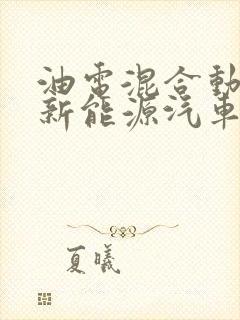 油電混合動
新能源汽車
夏曦